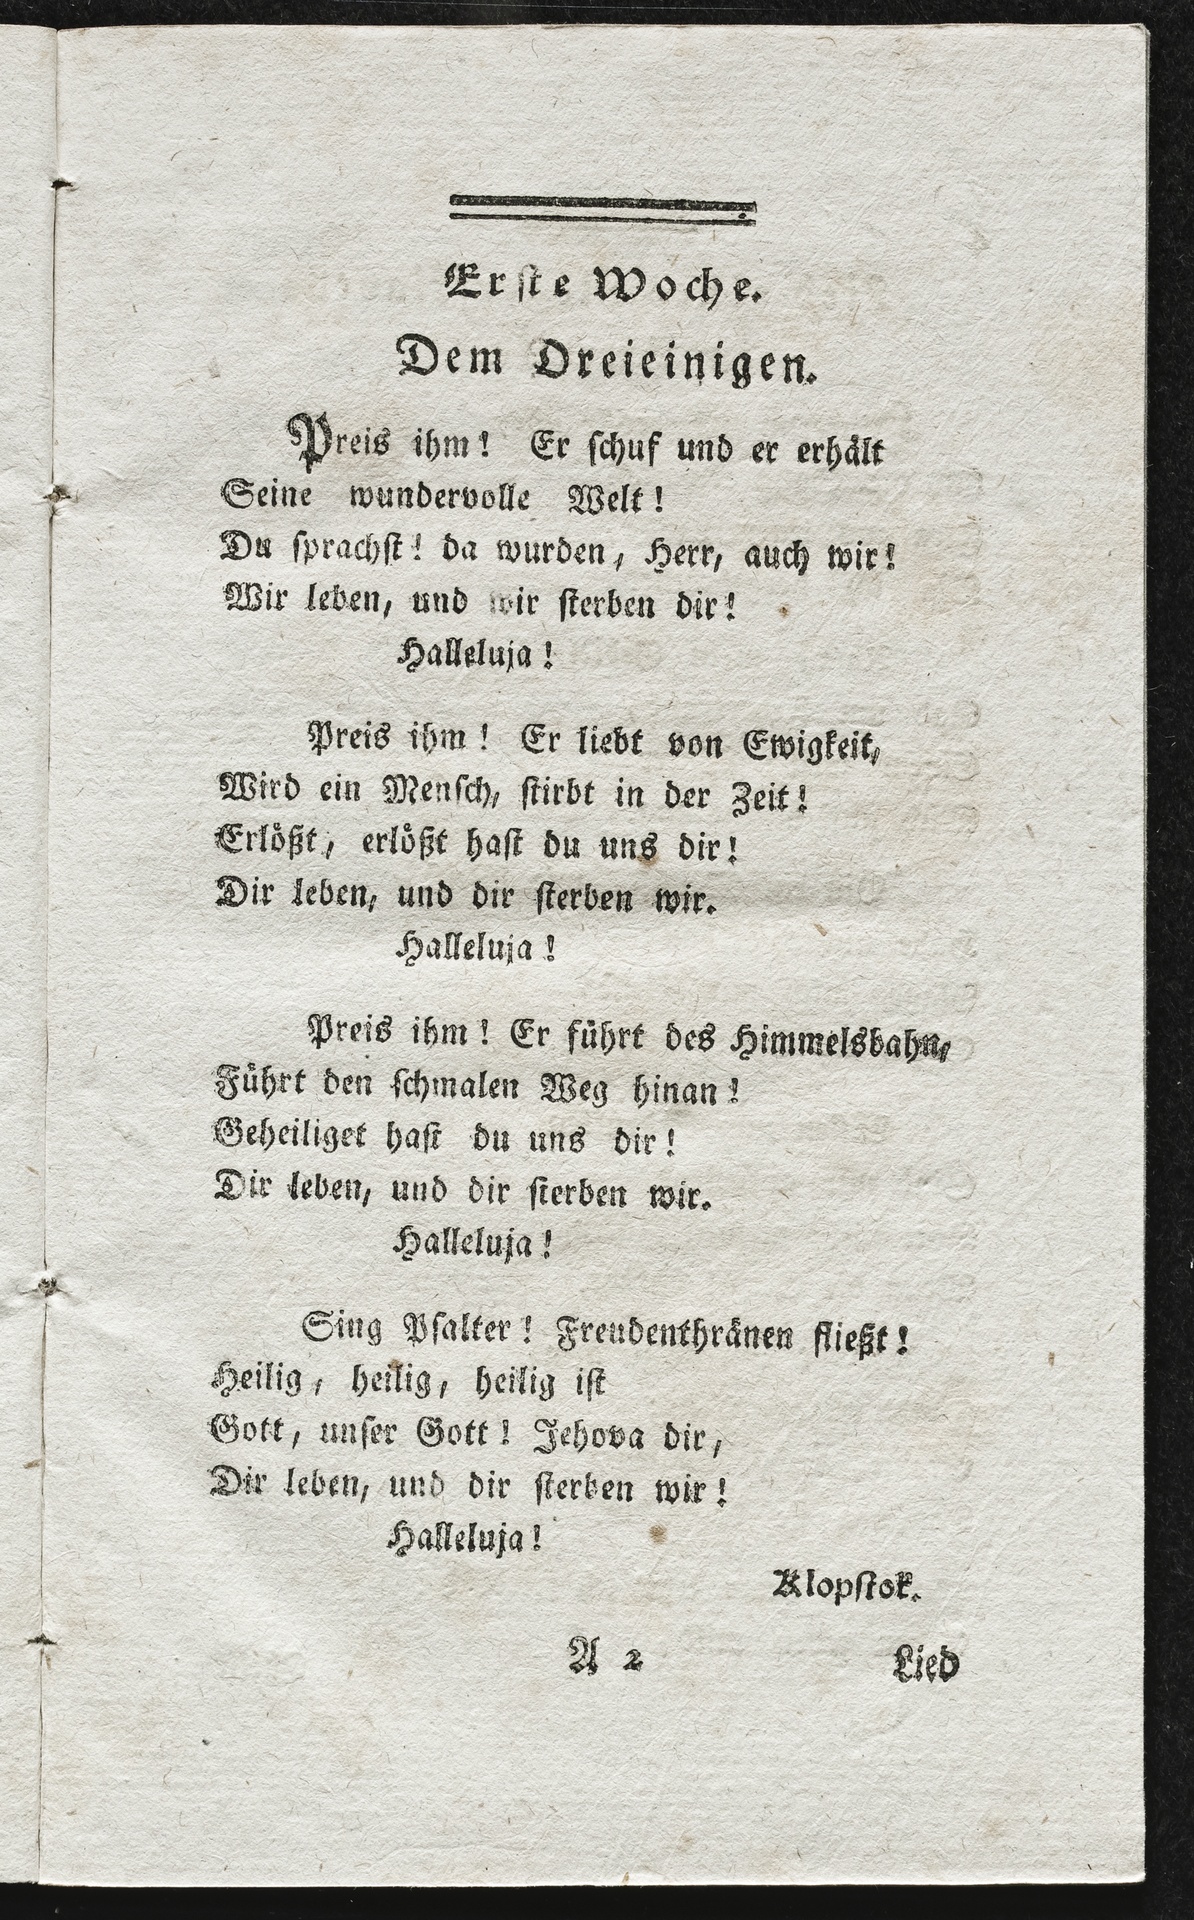 Erste Woche.
Dem Dreieinigen.
Preis ihm! Er ſchuf und er erhält
Seine wundervolle Welt!
Du ſprachſt! da wurden, Herr, auch wir!
Wir leben, und wir ſterben dir!
Halleluja!
Preis ihm! Er liebt von Ewigkeit,
Wird ein Menſch, ſtirbt in der Zeit!
Erlößt, erlößt haſt du uns dir!
Dir leben, und dir ſterben wir.
Halleluja!
Preis ihm! Er führt des Himmelsbahn,
Führt den ſchmalen Weg hinan!
Geheiliget haſt du uns dir!
Dir leben, und dir ſterben wir.
Halleluja!
Sing Pſalter! Freudenthränen fließt!
Heilig, heilig, heilig iſt
Gott, unſer Gott! Jehova dir,
Dir leben, und dir ſterben wir!
Halleluja!
Klopſtok.
A 2 Lied